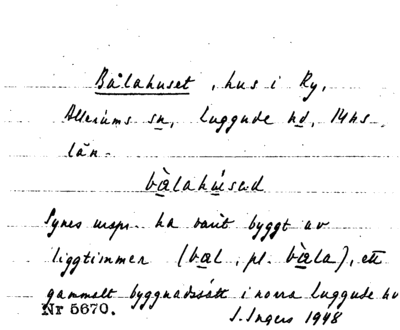 Bålahuset, hus i Ry,
Allerums sn, Luggude hd, Mhs
län.
bàlahúsəd
Synes urspr. ha varit byggt av
liggtimmer (bæl, pl. bæla), ett
gammalt byggnadssätt i norra Luggude hd
Nr 5670. I. Ingers 1948